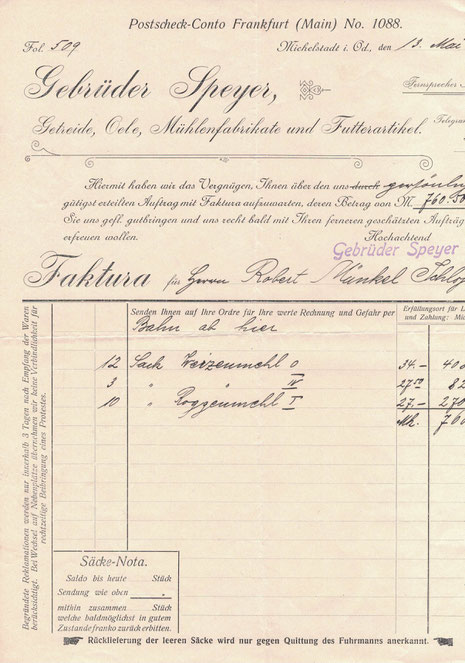 Postscheck-Conto Frankfurt (Main) No. 1088.
Fol. 509
Michelstadt i. Od., den 13. Mai
Gebrüder Speyer,
Fernsprecher
Getreide, Oele, Mühlenfabrikate und Futterartikel.
Telegra
Hiermit haben wir das Vergnügen, Ihnen über den uns durch persönl
gütigst erteilten Auftrag mit Faktura aufzuwarten, deren Betrag von M. 760.50
Sie uns gefl. gutbringen und uns recht bald mit Ihren ferneren geschätzten Aufträg
erfreuen wollen.
Hochachtend
Gebrüder Speyer
Faktura für Herrn Robert Münkel
Senden Ihnen auf Ihre Ordre für Ihre werte Rechnung und Gefahr per
Erfüllungsort für L
und Zahlung: Mi
Bahn ab hier
12 Sack Weizenmehl 0 34.– 40
3 " " IV 27.50 82
10 " Roggenmehl I 27.– 270
Mk. 760
Begründete Reklamationen werden nur innerhalb 3 Tagen nach Empfang der Waren
berücksichtigt. Bei Wechsel auf Nebenplätze übernehmen wir keine Verbindlichkeit für
rechtzeitige Beibringung eines Protestes.
Säcke-Nota.
Saldo bis heute Stück
Sendung wie oben
mithin zusammen Stück
welche baldmöglichst in gutem
Zustande franko zurückerbitten.
Rücklieferung der leeren Säcke wird nur gegen Quittung des Fuhrmanns anerkannt.